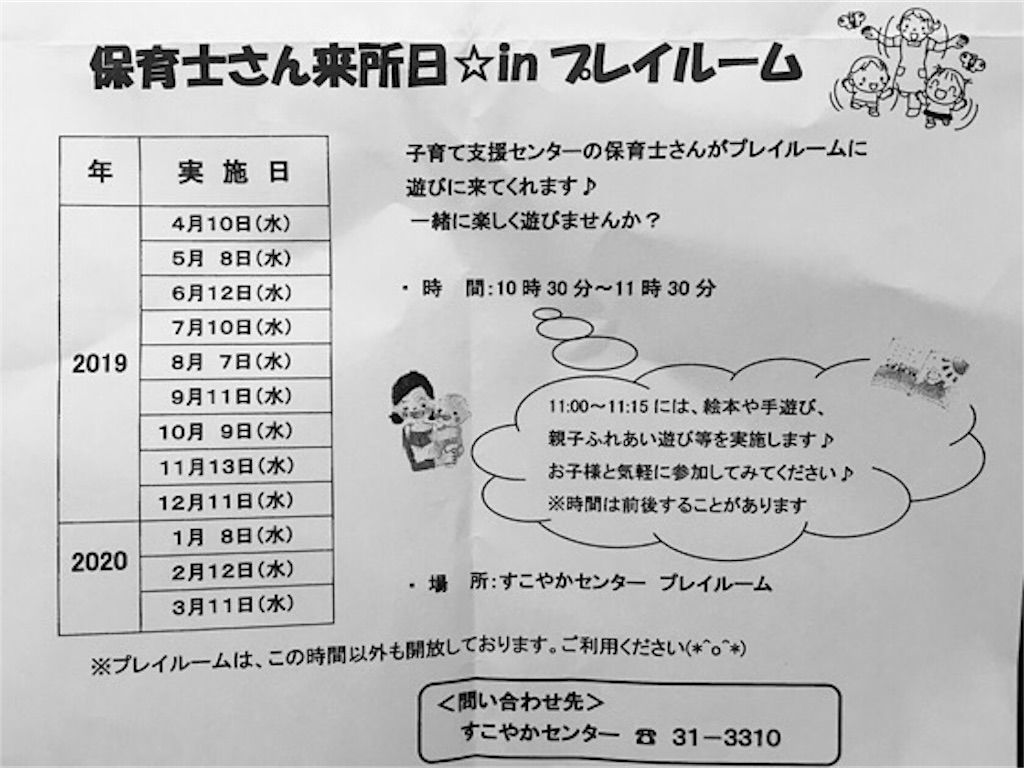 保育士さん来所日☆in プレイルーム
年 実 施 日
2019
4月10日(水)
5月 8日(水)
6月12日(水)
7月10日(水)
8月 7日(水)
9月11日(水)
10月 9日(水)
11月13日(水)
12月11日(水)
2020
1月 8日(水)
2月12日(水)
3月11日(水)
子育て支援センターの保育士さんがプレイルームに
遊びに来てくれます♪
一緒に楽しく遊びませんか？
・ 時 間：10時30分～11時30分
11:00～11:15には、絵本や手遊び、
親子ふれあい遊び等を実施します♪
お子様と気軽に参加してみてください♪
※時間は前後することがあります
・ 場 所：すこやかセンター プレイルーム
※プレイルームは、この時間以外も開放しております。ご利用ください(*^o^*)
＜問い合わせ先＞
すこやかセンター ☎ 31－3310